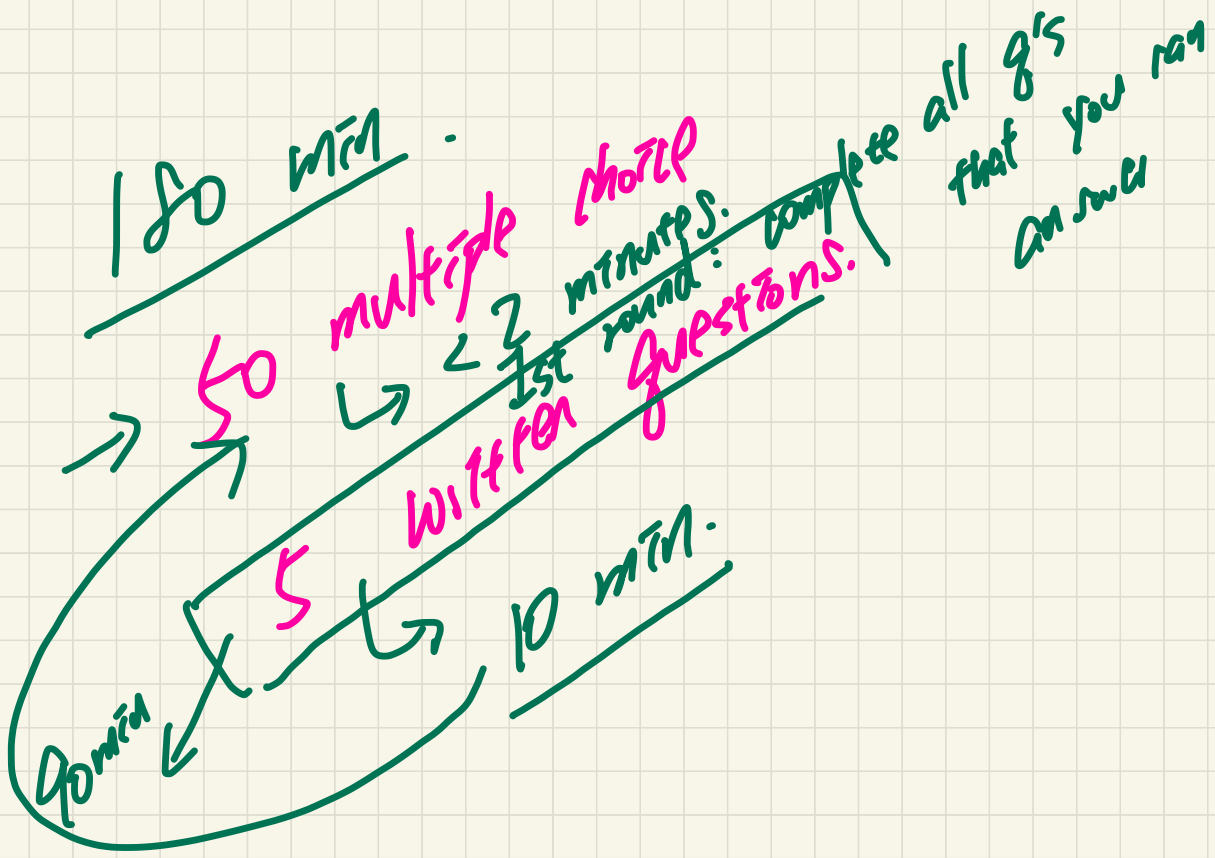 180 min.
50 multiple choice
< 2 minutes.
1st round: complete all q's
that you can
answer
5 written questions.
10 min.
90 min